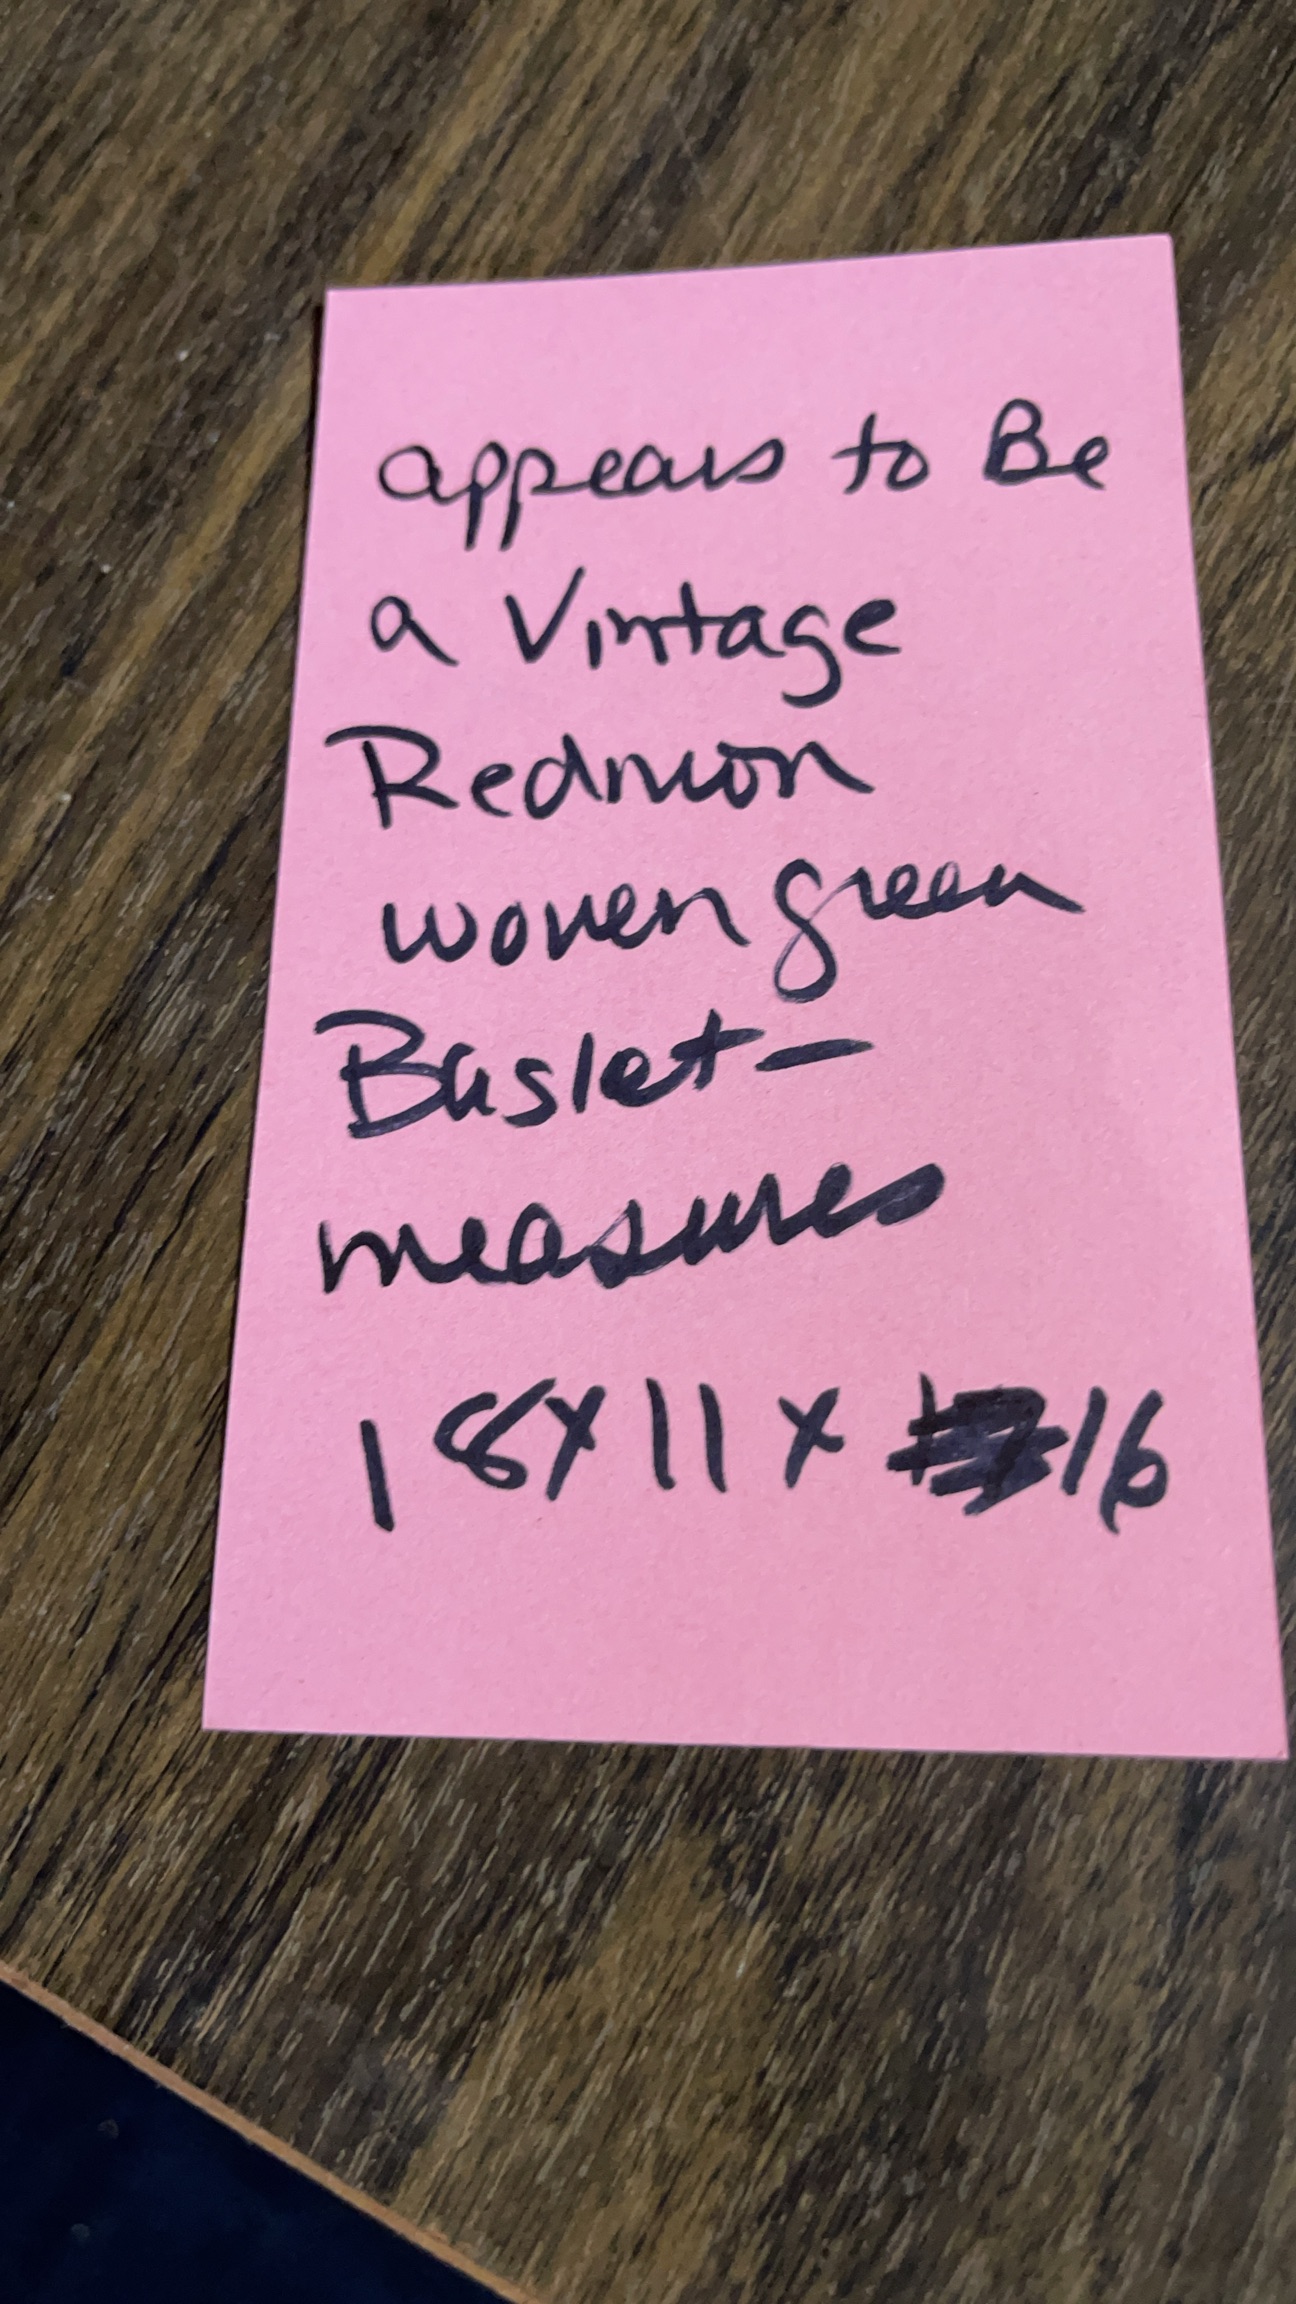 appears to Be
a Vintage
Redmon
woven green
Basket -
measures
18x11x 16